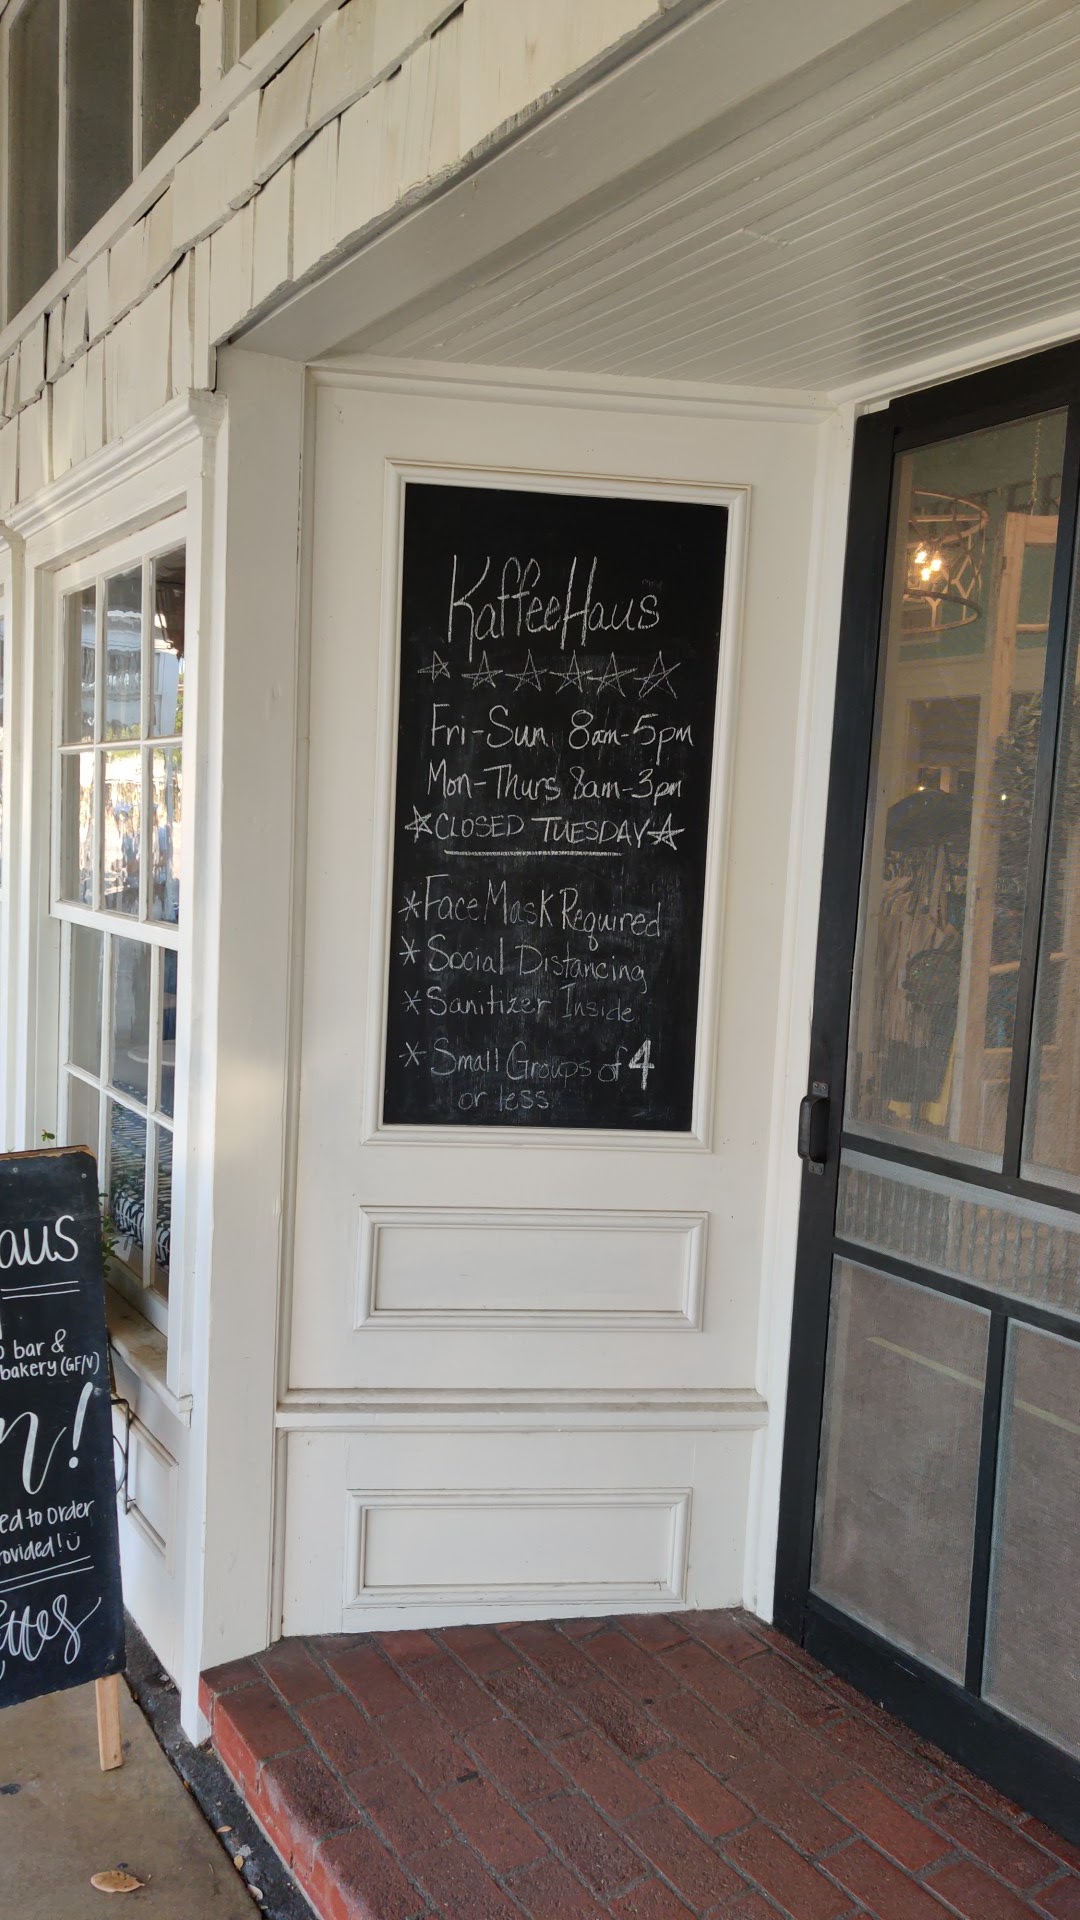 KaffeeHaus
Fri-Sun 8am-5pm
Mon-Thurs 8am-3pm
CLOSED TUESDAY
* Face Mask Required
* Social Distancing
* Sanitizer Inside
* Small Groups of 4
or less
aus
bar &
bakery (GF/V)
n!
ed to order
rovided!
ttes